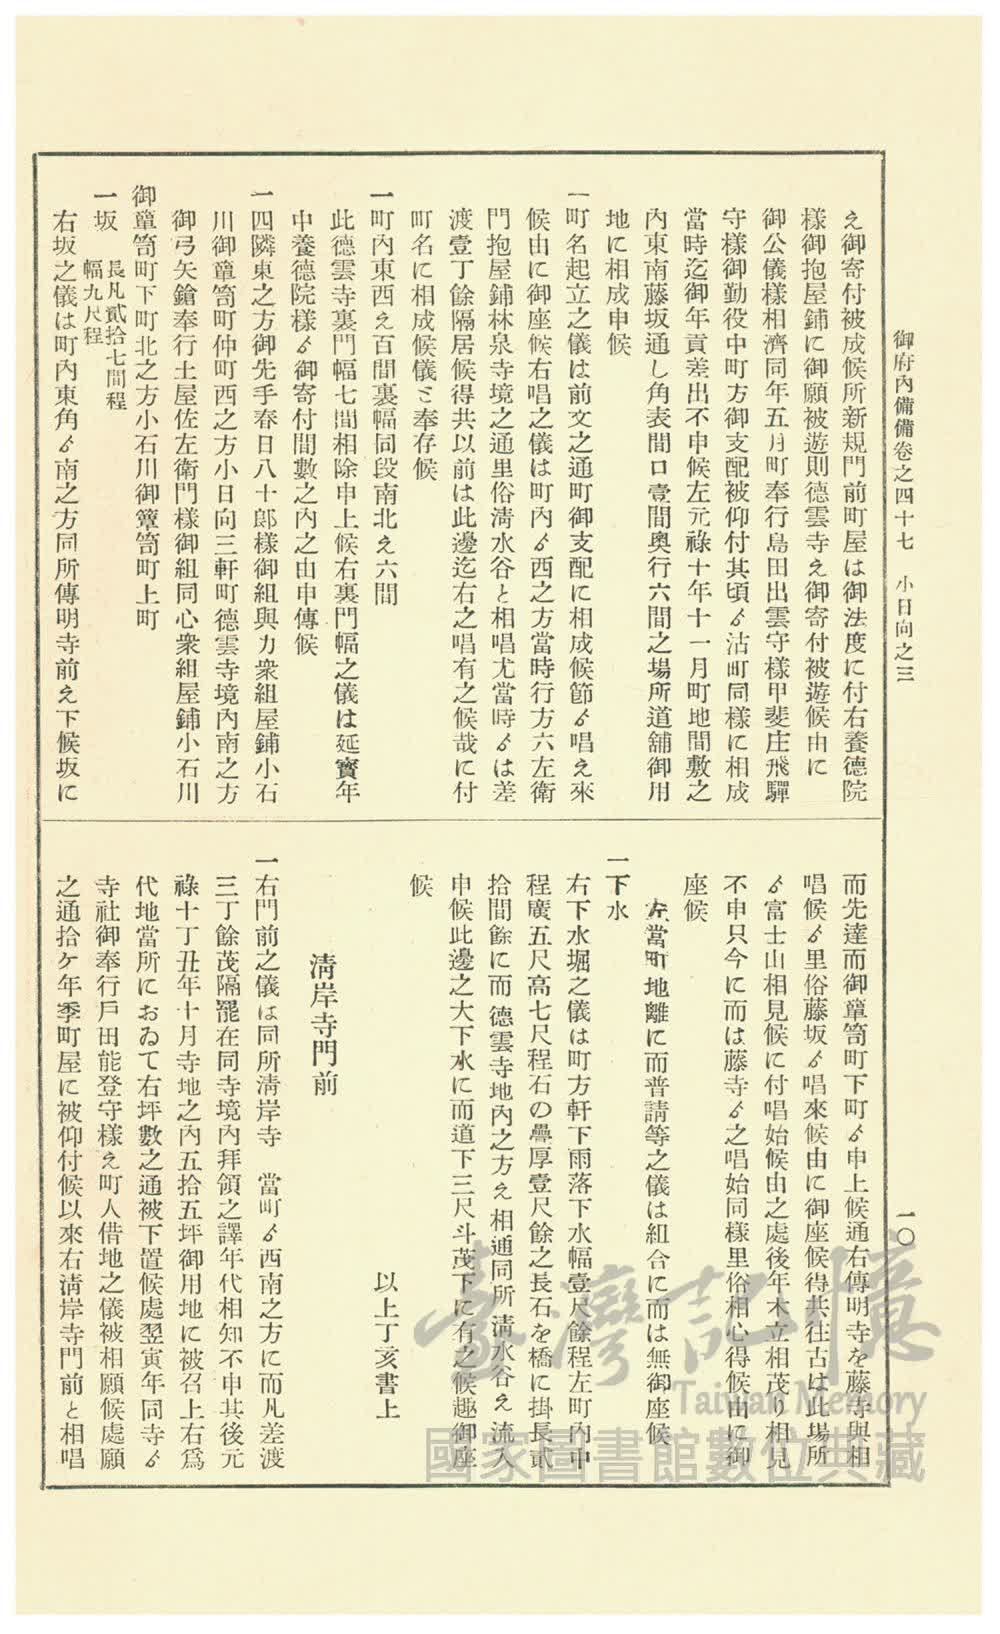 御府內備備卷之四十七　小日向之三
一〇
え御寄付被成候所新規門前町屋は御法度に付右養德院
樣御抱屋鋪に御願被遊則德雲寺え御寄付被遊候由に
御公儀樣相濟同年五月町奉行島田出雲守樣甲斐庄飛驒
守樣御勤役中町方御支配被仰付其頃ゟ沽町同樣に相成
當時迄御年貢差出不申候左元祿十年十一月町地間敷之
內東南藤坂通し角表間口壹間奧行六間之場所道舖御用
地に相成申候
一町名起立之儀は前文之通町御支配に相成候節ゟ唱え來
候由に御座候右唱之儀は町內ゟ西之方當時行方六左衛
門抱屋鋪林泉寺境之通里俗淸水谷と相唱尤當時ゟは差
渡壹丁餘隔居候得共以前は此邊迄右之唱有之候哉に付
町名に相成候儀ミ奉存候
一町內東西え百間裏幅同段南北え六間
此德雲寺裏門幅七間相除申上候右裏門幅之儀は延寳年
中養德院樣ゟ御寄付間數之內之由申傳候
一四隣東之方御先手春日八十郞樣御組與力衆組屋鋪小石
川御簞笥町仲町西之方小日向三軒町德雲寺境內南之方
御弓矢鎗奉行土屋佐左衛門樣御組同心衆組屋鋪小石川
御簞笥町下町北之方小石川御簞笥町上町
一坂　長凡貳拾七間程
幅九尺程
右坂之儀は町內東角ゟ南之方同所傳明寺前え下候坂に
而先達而御簞笥町下町ゟ申上候通右傳明寺を藤寺與相
唱候ゟ里俗藤坂ゟ唱來候由に御座候得共往古は此場所
ゟ富士山相見候に付唱始候由之處後年木立相茂り相見
不申只今に而は藤寺ゟ之唱始同樣里俗相心得候由に御
座候
左當町地離に而普請等之儀は組合に而は無御座候
一下水
右下水堀之儀は町方軒下雨落下水幅壹尺餘程左町內中
程廣五尺高七尺程石の疊厚壹尺餘之長石を橋に掛長貳
拾間餘に而德雲寺地內之方え相通同所淸水谷え流入
申候此邊之大下水に而道下三尺斗茂下に有之候趣御座
候
以上丁亥書上
淸岸寺門前
一右門前之儀は同所淸岸寺　當町ゟ西南之方に而凡差渡
三丁餘茂隔罷在同寺境內拜領之譯年代相知不申其後元
祿十丁丑年十月寺地之內五拾五坪御用地に被召上右爲
代地當所におゐて右坪數之通被下置候處翌寅年同寺ゟ
寺社御奉行戶田能登守樣え町人借地之儀被相願候處願
之通拾ケ年季町屋に被仰付候以來右淸岸寺門前と相唱
臺灣記憶
Taiwan Memory
國家圖書館數位典藏